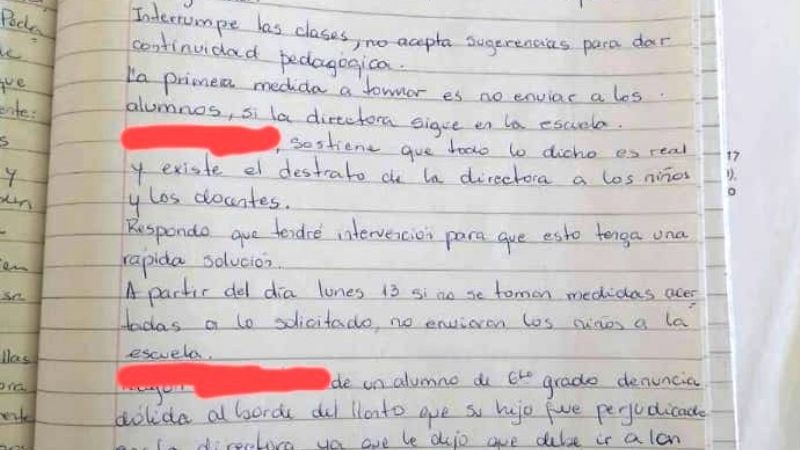 Interrumpe las clases, no acepta sugerencias para dar
continuidad pedagógica.
La primera medida a tomar es no enviar a los
alumnos, si la directora sigue en la escuela.
, sostiene que todo lo dicho es real
y existe el destrato de la directora a los niños
y los docentes.
Respondo que tendré intervención para que esto tenga una
rápida solución.
A partir del día lunes 13 si no se toman medidas acer
tadas a lo solicitado, no enviaran los niños a la
escuela.
de un alumno de 6to grado denuncia
dólida al borde del llanto que su hijo fue perjudicado
la directora ya que le dijo que debe ir a